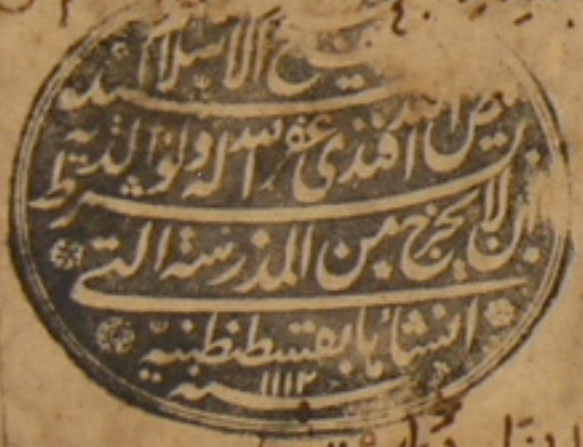 شيخ الاسلام السيد
فيض الله افندى غفر الله له ولوالديه
بشرط ان لا يخرج من المدرسة التى
انشأها بقسطنطنية
سنة ١١١٢